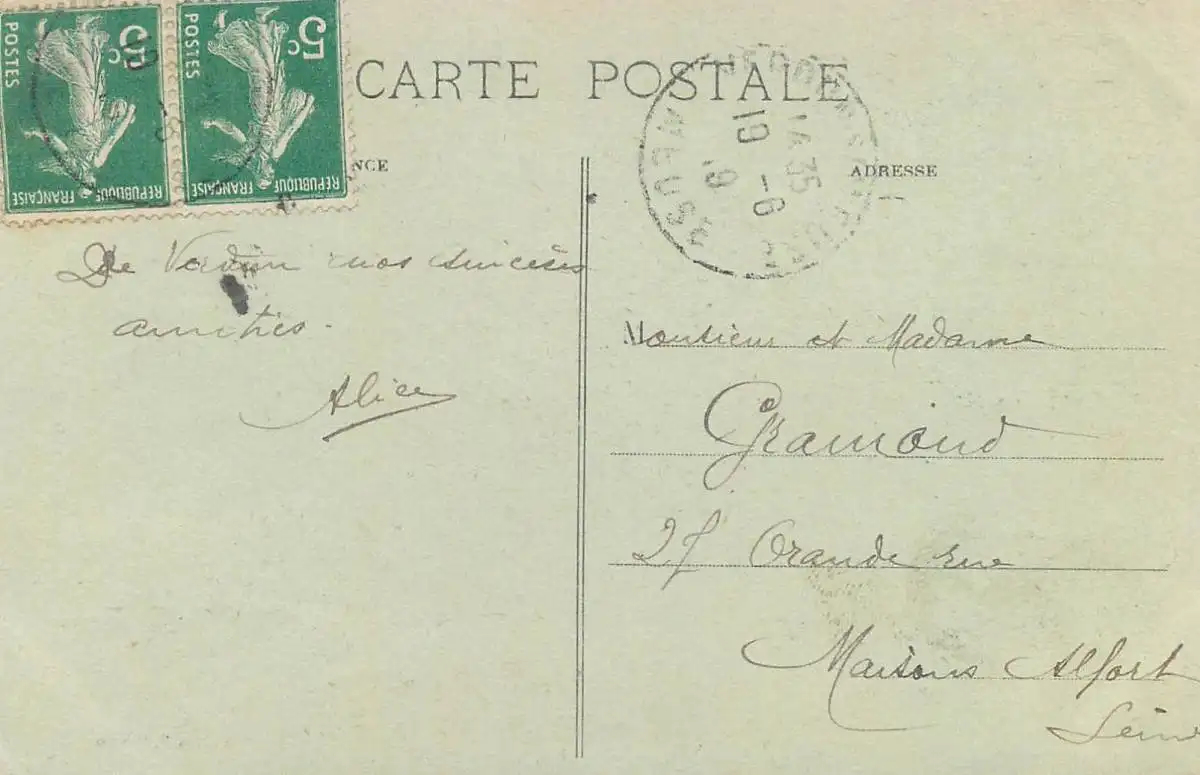 5c
POSTES
RÉPUBLIQUE FRANÇAISE
5c
POSTES
RÉPUBLIQUE FRANÇAISE
CARTE POSTALE
NCE
ADRESSE
14 35
19 -6
19
MEUSE
De Verdun nos sincères
amitiés.
Alice
Monsieur et Madame
Gramond
27 Grande rue
Maisons Alfort
Seine